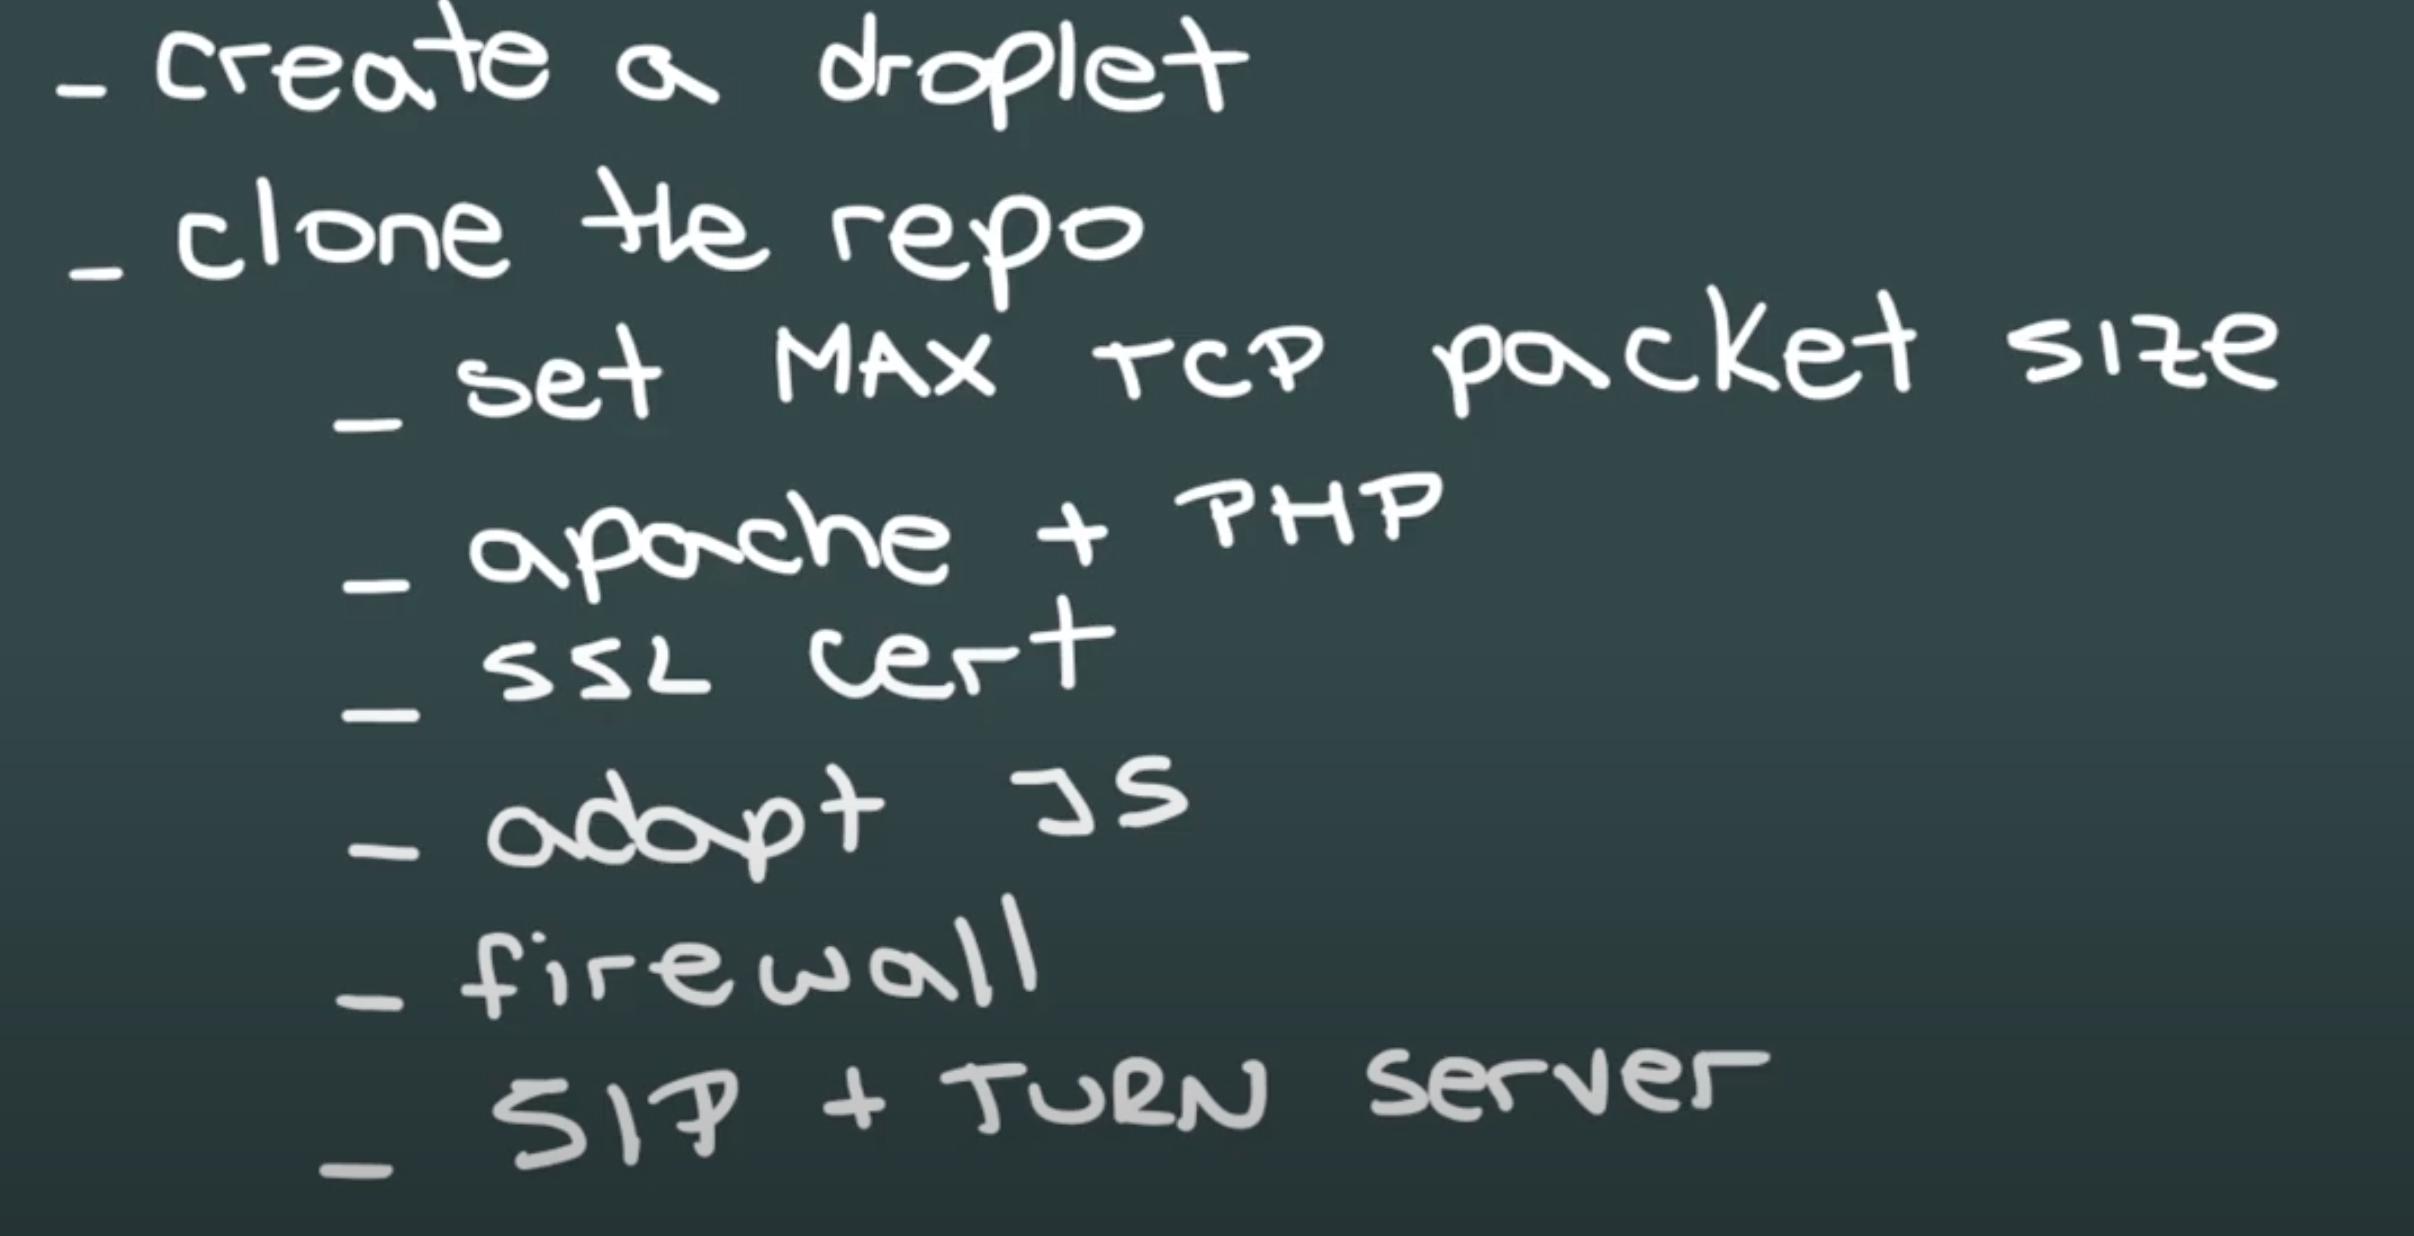 - create a droplet
- clone the repo
- set MAX TCP packet size
- apache + PHP
- SSL cert
- adapt JS
- firewall
- SIP + TURN server